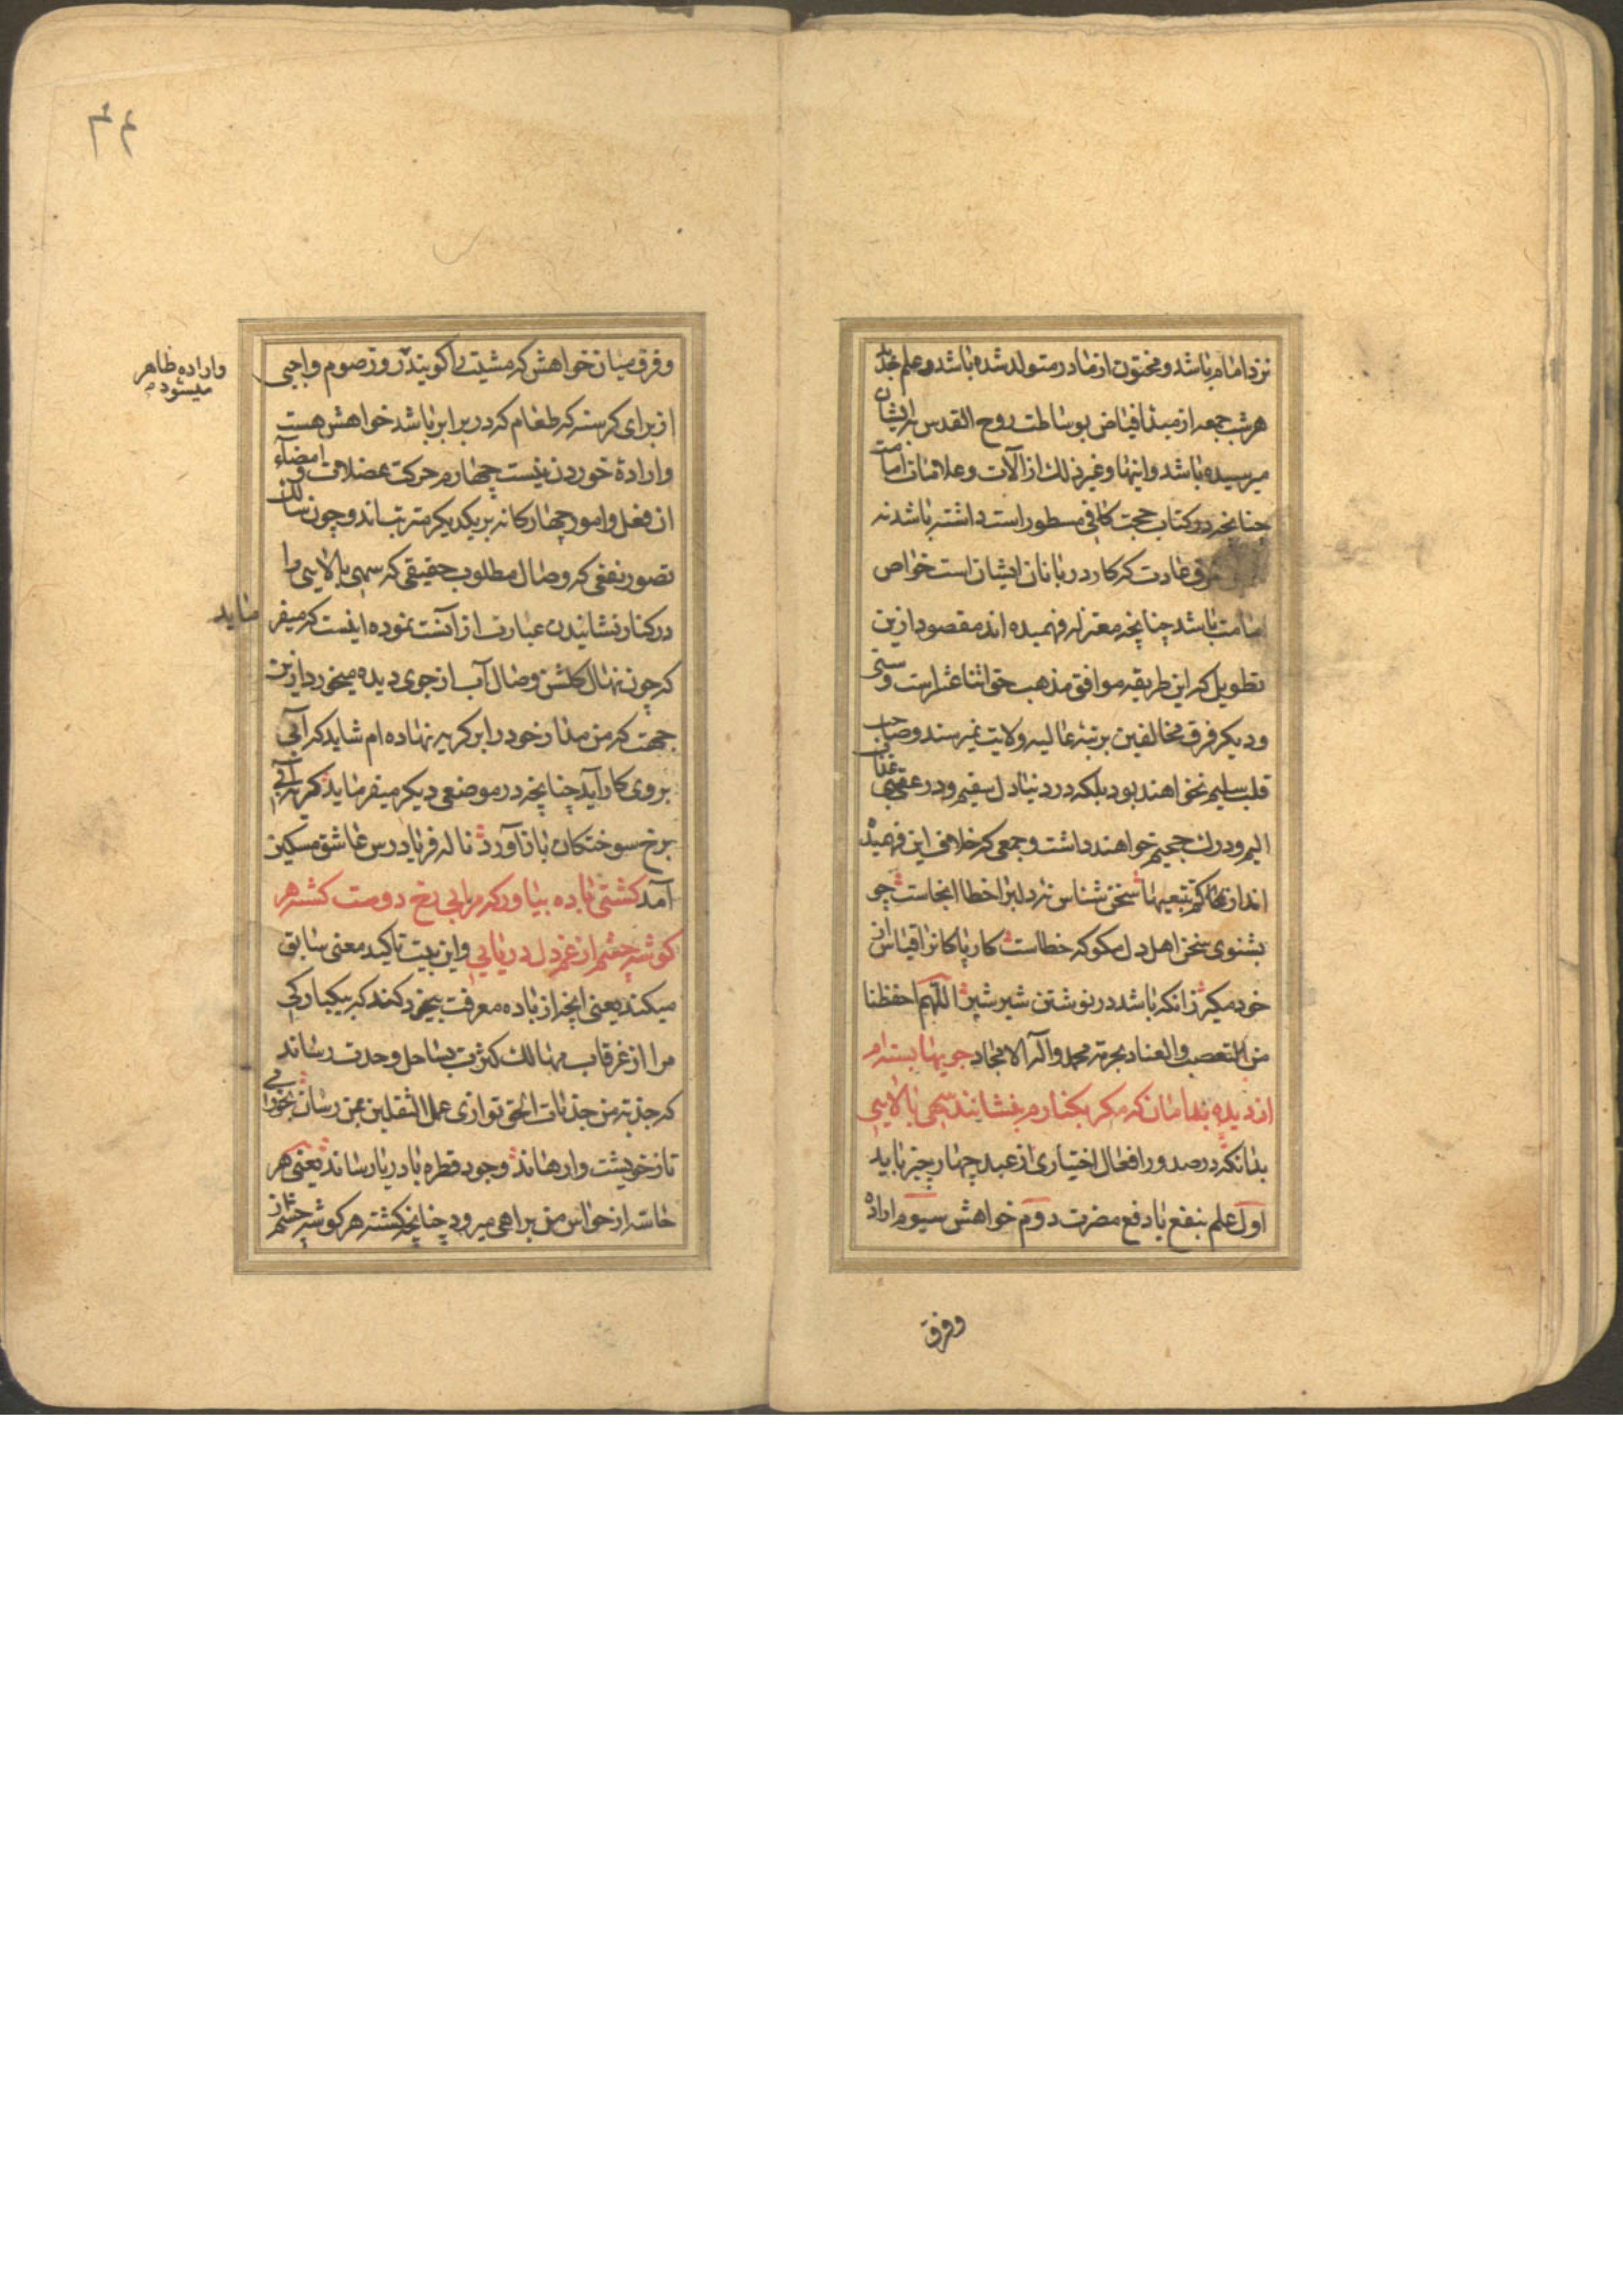 نزد امام باشد و مختون از مادر متولد شده باشد و علم
هر شب جمعه از مبدا فیاض بوساطت روح القدس بایشان
میرسیده باشد و اینها و غیر ذلک از آلات و علامات امامت
چنانچه در کتاب حجت کافی مسطور است داشته باشد نه
عادت که کار دربانان ایشان است خواص
امامت باشد چنانچه معتزله فهمیده اند مقصود ازین
تطویل که این طریقه موافق مذهب حق اثنا عشر است و سنی
و دیکر فرق مخالفین برتبه عالیه ولایت نمیرسند و صاحب
قلب سلیم نخواهند بود بلکه در دنیا دل سقیم و در عقبی عذاب
الیم و درک جحیم خواهند داشت و جمعی که خلاف این فهمیده
اند سخن شناس نه دلبرا خطا اینجاست چو
بشنوی سخن اهل دل مکو که خطاست کار پاکانرا قیاس از
خود مکیر زانکه باشد در نوشتن شیر شیر اللهم احفظنا
من التعصب والعناد بحرمة محمد وآله الامجاد جویها بسته ام
از دیده بدامان که مکر بکنارم بنشانند سهی بالایی
بدانکه در صدور افعال اختیاری از عبد چهار چیز باید
اول علم بنفع یا دفع مضرت دوم خواهش سیوم اراده
وفرق
۴۴
و فرق میان خواهش که مشیت کویند و روز صوم واجبی
واراده ظاهر
میشود
از برای کرسنه که طعام که در برابر باشد خواهش هست
و ارادهٔ خوردن نیست چهارم حرکت عضلات و امضآء
ان فعل و امور چهارکانه بر یکدیکر مترتب اند و چون سالک
تصور نفعی که وصال مطلوب حقیقی که سهی بالایی را
در کنار نشانیدن عبارت از آنست نموده اینست که میفر
ماید
که چون نهال کلشن وصال آب از جوی دیده میخورد ازین
جهت که من مدار خود را بر کریه نهاده ام شاید که آبی
بروی کار آید چنانچه در موضعی دیکر میفرماید کریه آبی
برخ سوختکان باز آورد ناله فریادرس عاشق مسکین
آمد کشتی باده بیاور که مرا بی رخ دوست کشته هر
کوشه چشم از غم دل دریایی و این بیت تاکید معنی سابق
میکند یعنی انچه از باده معرفت بیخرد کند که بیکبارکی
مرا از غرقاب مهالک کثرت بساحل وحدت رساند
که جذبة من جذبات الحق توازی عمل الثقلین بمن رسان
تا ز خویشت وارهاند وجود قطره با دریا رساند یعنی هر
حاسه از حواس من براهی میرود چنانچه کشته هر کوشه چشم از